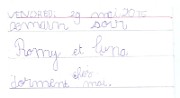 VENDREDI 29 mai 2015
demain soir
Romy et Luna
dorment chez moi.